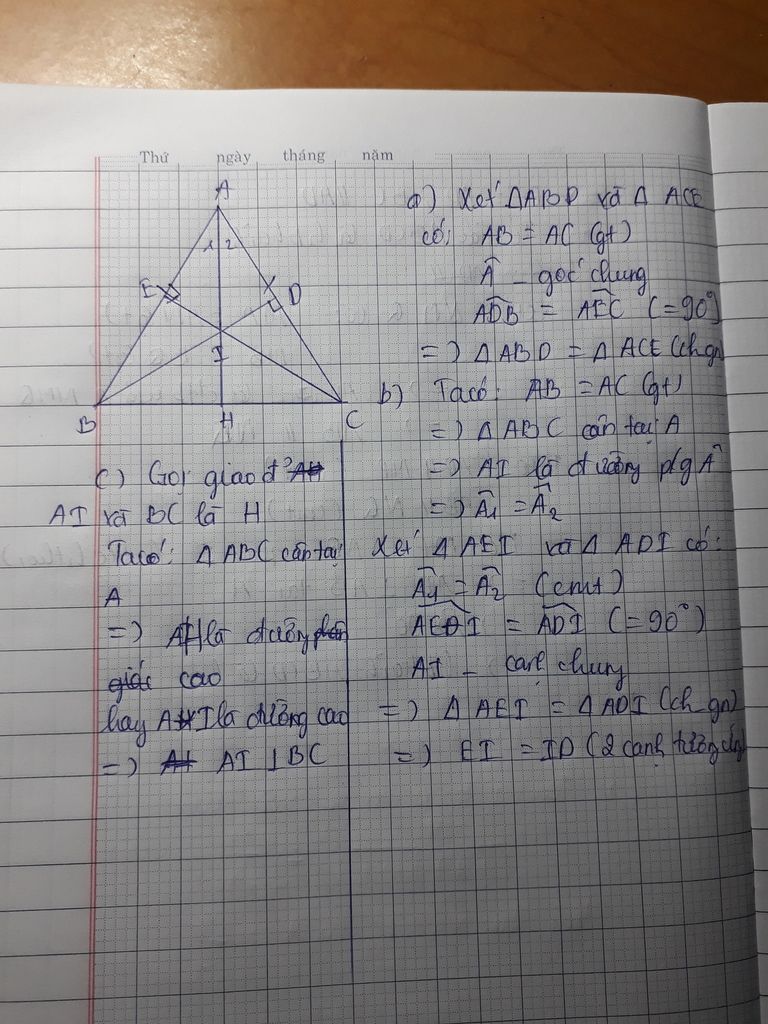 Thứ ngày tháng năm
A
1 2
E
D
I
B
H
C
a) Xét ΔABD và Δ ACE
có: AB = AC (gt)
Â _ góc chung
ADB = AEC (= 90°)
=) Δ ABD = Δ ACE (ch gn)
b) Ta có: AB = AC (gt)
=) Δ ABC cân tại A
=) AI là đường p/g Â
=) A1 = A2
Xét Δ AEI và Δ ADI có:
A1 = A2 (cmt)
AEI = ADI (= 90°)
AI _ cạnh chung
=) Δ AEI = Δ ADI (ch gn)
=) EI = ID (2 cạnh tương ứng)
c) Gọi giao đ²
AI và BC là H
Ta có: Δ ABC cân tại
A
=) AH là đường phân
giác cao
hay AI là đường cao
=) AI ⊥ BC